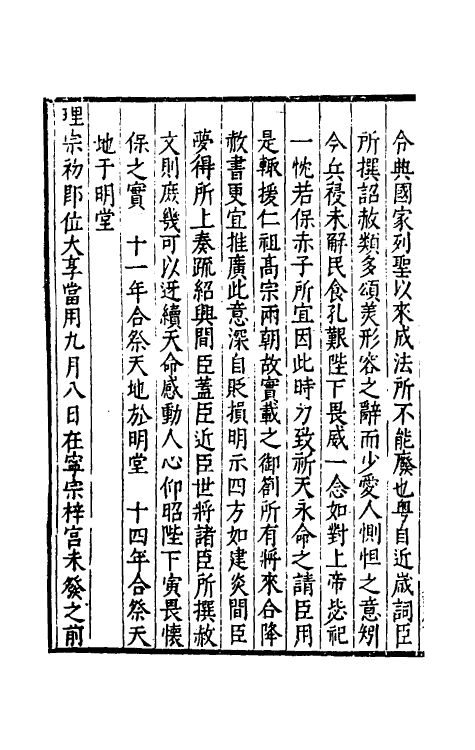 令典國家列聖以來成法所不能廢也粤自近歳詞臣
所撰詔赦類多頌美形容之辭而少愛人惻怛之意矧
今兵禝未解民食孔艱陛下畏威一念如對上帝毖祀
一忱若保赤子所宜因此時力致祈天永命之請臣用
是輙援仁祖髙宗兩朝故實載之御劄所有將來合降
赦書更宜推廣此意深自貶損明示四方如建炎間臣
夢得所上奏疏紹興間臣蓋臣近臣世將諸臣所撰赦
文則庶幾可以迓續天命感動人心仰昭陛下寅畏懐
保之實　十一年合祭天地於明堂　十四年合祭天
地于明堂
理宗初即位大享當用九月八日在寧宗梓宫未發之前